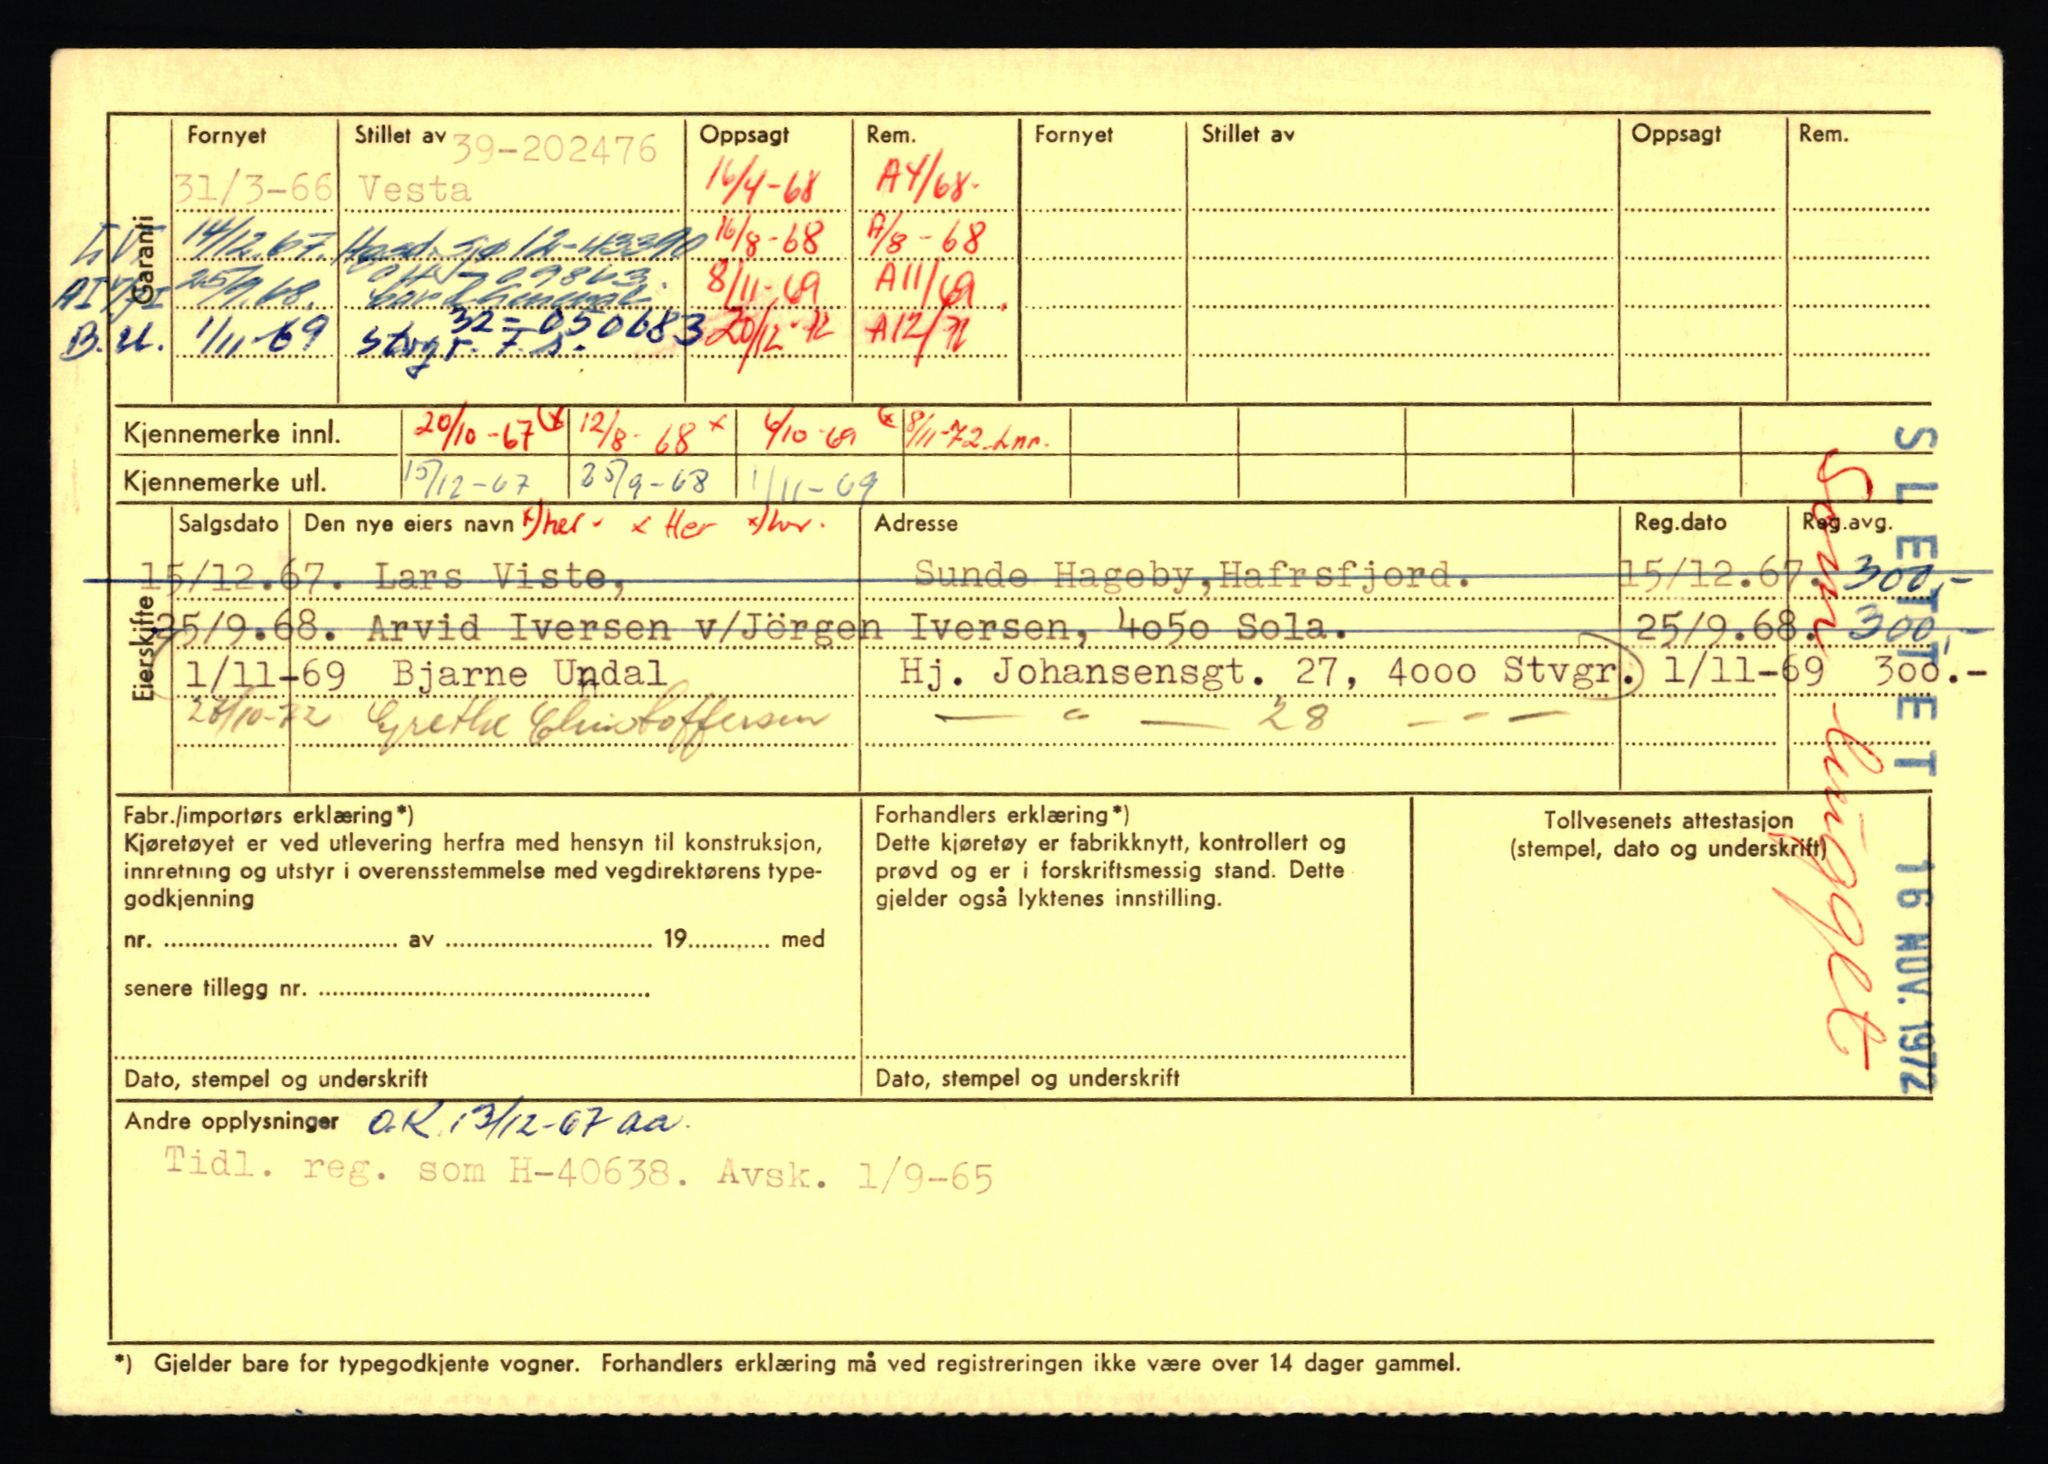 Garanti
Fornyet Stillet av 39-202476 Oppsagt Rem. Fornyet Stillet av Oppsagt Rem.
31/3-66 Vesta 16/4-68 A4/68.
14/12.67. 12-43390 16/8-68 A/8-68
25/9.68. 8/11-69 A11/69.
B.U. 1/11-69 32-050683 Stvgr. F.s. 20/12-72 A12/72
Kjennemerke innl. 20/10-67 (x 12/8-68 x 4/10-69 (x 8/11-72
Kjennemerke utl. 15/12-67 25/9-68 1/11-69
Eierskifte
Salgsdato Den nye eiers navn x) her. x Her x) her. Adresse Reg.dato Reg.avg.
15/12.67. Lars Viste, Sunde Hageby,Hafrsfjord. 15/12.67. 300,-
25/9.68. Arvid Iversen v/Jörgen Iversen, 4050 Sola. 25/9.68. 300,-
1/11-69 Bjarne Undal Hj. Johansensgt. 27, 4000 Stvgr. 1/11-69 300.-
26/10-72 Grethe Christoffersen — " — 28 — - —
SLETTET 16 NOV. 1972
Fabr./importørs erklæring*)
Kjøretøyet er ved utlevering herfra med hensyn til konstruksjon,
innretning og utstyr i overensstemmelse med vegdirektørens type-
godkjenning
nr. ........ av ........ 19........ med
senere tillegg nr. ........
Dato, stempel og underskrift
Forhandlers erklæring*)
Dette kjøretøy er fabrikknytt, kontrollert og
prøvd og er i forskriftsmessig stand. Dette
gjelder også lyktenes innstilling.
Dato, stempel og underskrift
Tollvesenets attestasjon
(stempel, dato og underskrift)
Andre opplysninger O.K. 13/12-67 aa.
Tidl. reg. som H-40638. Avsk. 1/9-65
*) Gjelder bare for typegodkjente vogner. Forhandlers erklæring må ved registreringen ikke være over 14 dager gammel.